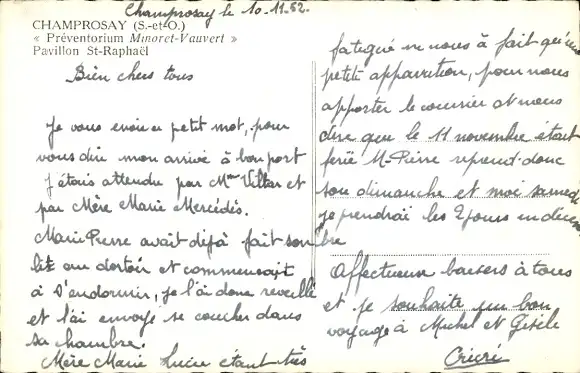 Champrosay le 10.11.52.
CHAMPROSAY (S.-et-O.)
« Préventorium Minoret-Vauvert »
Pavillon St-Raphaël
Bien chers tous
Je vous envoie ce petit mot, pour
vous dire mon arrivée à bon port
J'étais attendu par Mme et
par Mère Marie Mercédès.
Marie Pierre avait déjà fait son
lit au dortoir et commençait
à s'endormir, je l'ai donc réveillé
et l'ai envoyé se coucher dans
sa chambre.
Mère Marie Lucie étant très
fatiguée ne nous à fait qu'une
petite apparution, pour nous
apporter le courrier et nous
dire que le 11 novembre étant
ferié M-Pierre reprend donc
son dimanche et moi samedi
je prendrai les 2 jours en décem
bre
Affectueux baisers à tous
et je souhaite un bon
voyage à Michel et Gisèle
Cricri